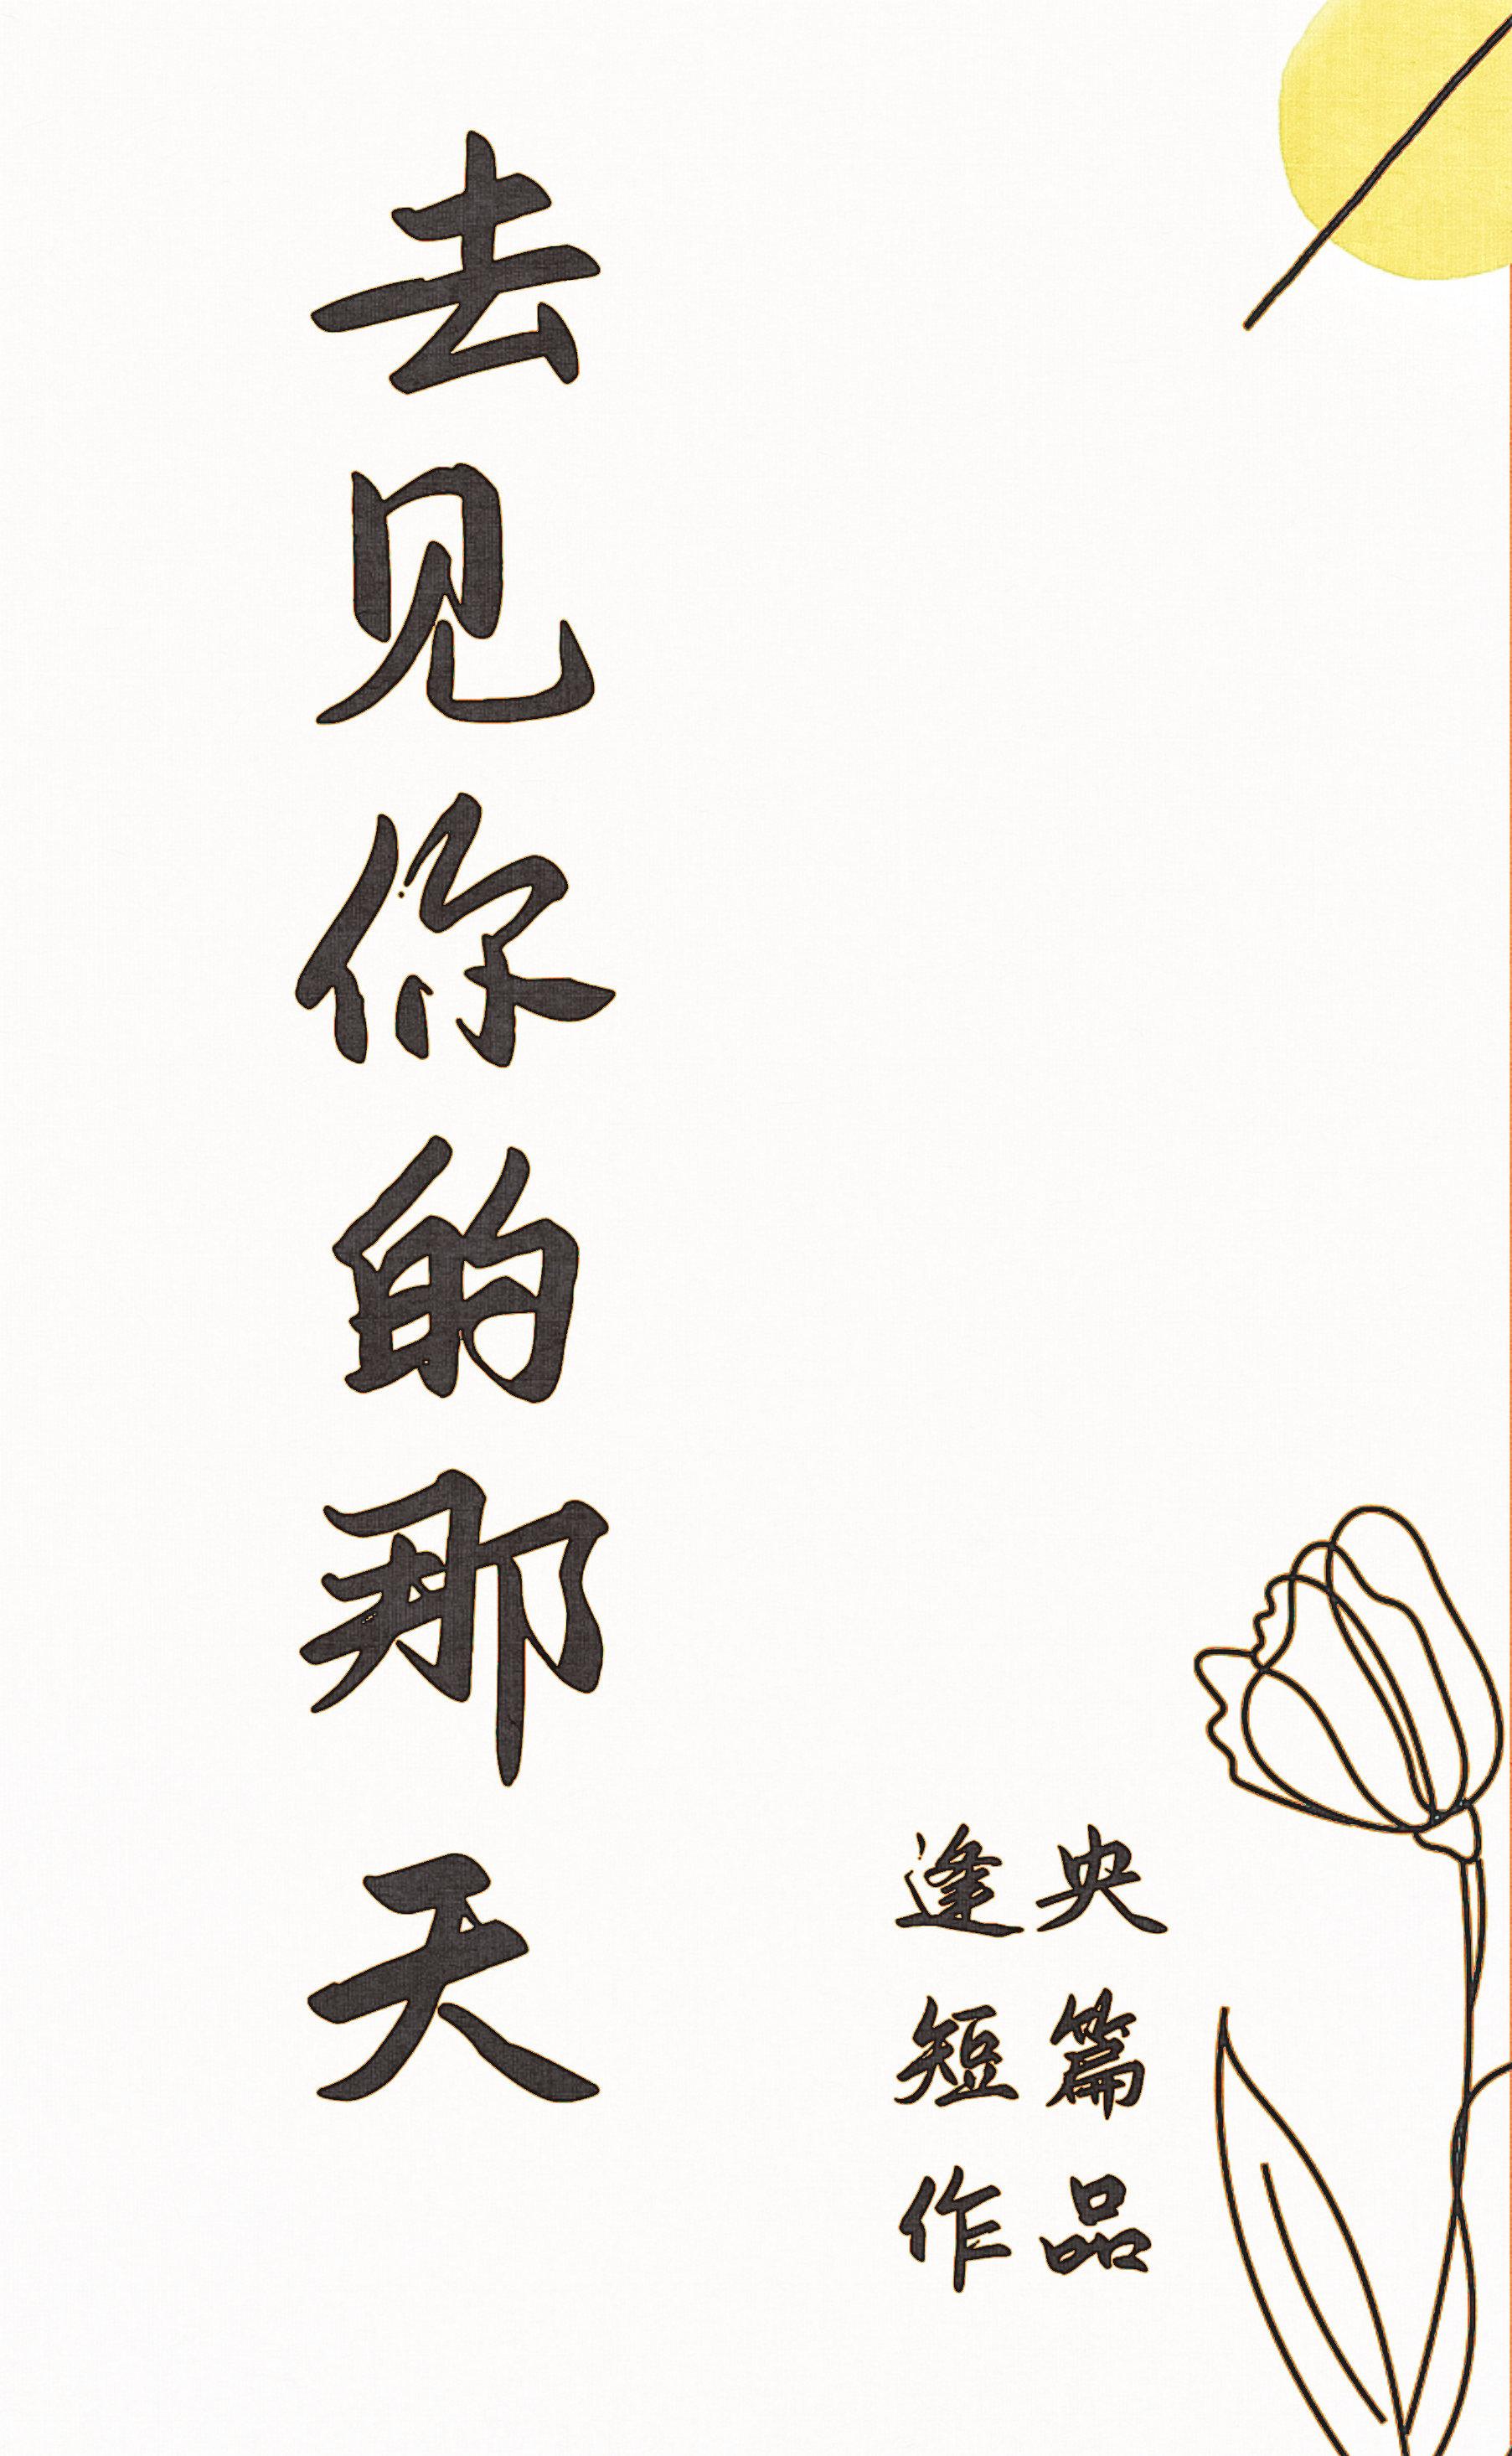 去见你的那天
逢央
短篇
作品